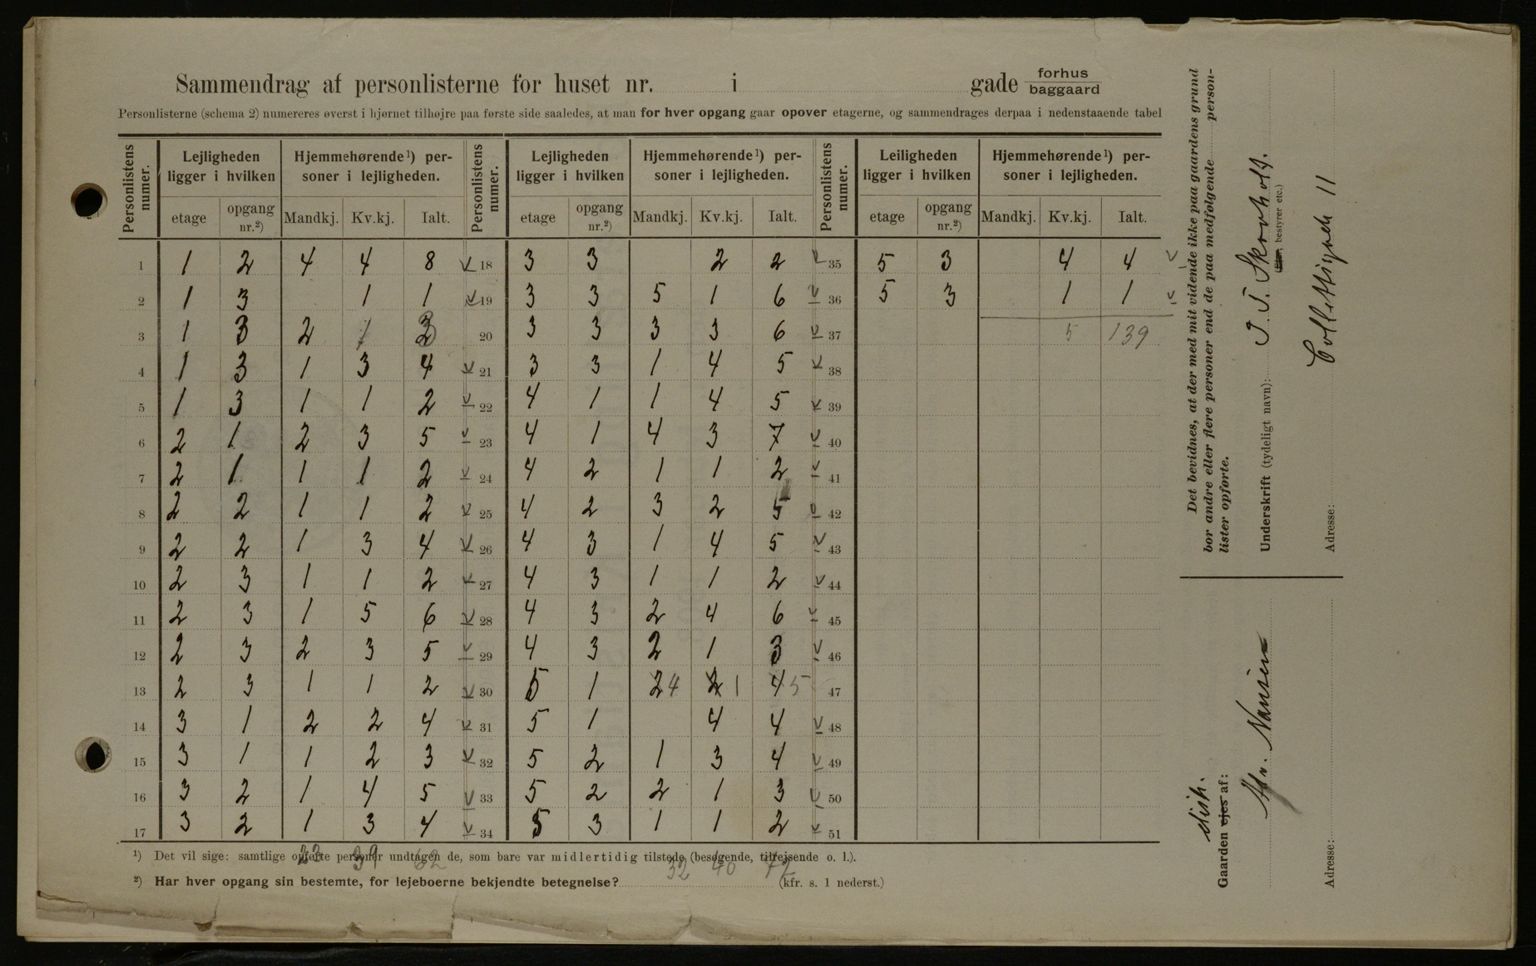 Sammendrag af personlisterne for huset nr. i gade forhus baggaard
Personlisterne (schema 2) numereres øverst i hjørnet tilhøjre paa første side saaledes, at man for hver opgang gaar opover etagerne, og sammendrages derpaa i nedenstaaende tabel
Personlistens numer. Lejligheden ligger i hvilken etage opgang nr.²) Hjemmehørende¹) personer i lejligheden. Mandkj. Kv.kj. Ialt.
1 1 2 4 4 8
2 1 3 1 1
3 1 3 2 1 3
4 1 3 1 3 4
5 1 3 1 1 2
6 2 1 2 3 5
7 2 1 1 1 2
8 2 2 1 1 2
9 2 2 1 3 4
10 2 3 1 1 2
11 2 3 1 5 6
12 2 3 2 3 5
13 2 3 1 1 2
14 3 1 2 2 4
15 3 1 1 2 3
16 3 2 1 4 5
17 3 2 1 3 4
Personlistens numer. Lejligheden ligger i hvilken etage opgang nr.²) Hjemmehørende¹) personer i lejligheden. Mandkj. Kv.kj. Ialt.
18 3 3 2 2
19 3 3 5 1 6
20 3 3 3 3 6
21 3 3 1 4 5
22 4 1 1 4 5
23 4 1 4 3 7
24 4 2 1 1 2
25 4 2 3 2 5
26 4 3 1 4 5
27 4 3 1 1 2
28 4 3 2 4 6
29 4 3 2 1 3
30 5 1 2 4 2 1 4 5
31 5 1 4 4
32 5 2 1 3 4
33 5 2 2 1 3
34 5 3 1 1 2
Personlistens numer. Leiligheden ligger i hvilken etage opgang nr.²) Hjemmehørende¹) personer i lejligheden. Mandkj. Kv.kj. Ialt.
35 5 3 4 4
36 5 3 1 1
37 5 139
38
39
40
41
42
43
44
45
46
47
48
49
50
51
¹) Det vil sige: samtlige opførte personer undtagen de, som bare var midlertidig tilstede (besøgende, tilrejsende o. l.).
39 62
32 40 72
²) Har hver opgang sin bestemte, for lejeboerne bekjendte betegnelse? (kfr. s. 1 nederst.)
Det bevidnes, at der med mit vidende ikke paa gaardens grund
bor andre eller flere personer end de paa medfølgende person-
lister opførte.
Underskrift (tydeligt navn):
bestyrer etc.)
Adresse: Collettsgade 11
Gaarden ejes af:
Hr. Nansen
Adresse: